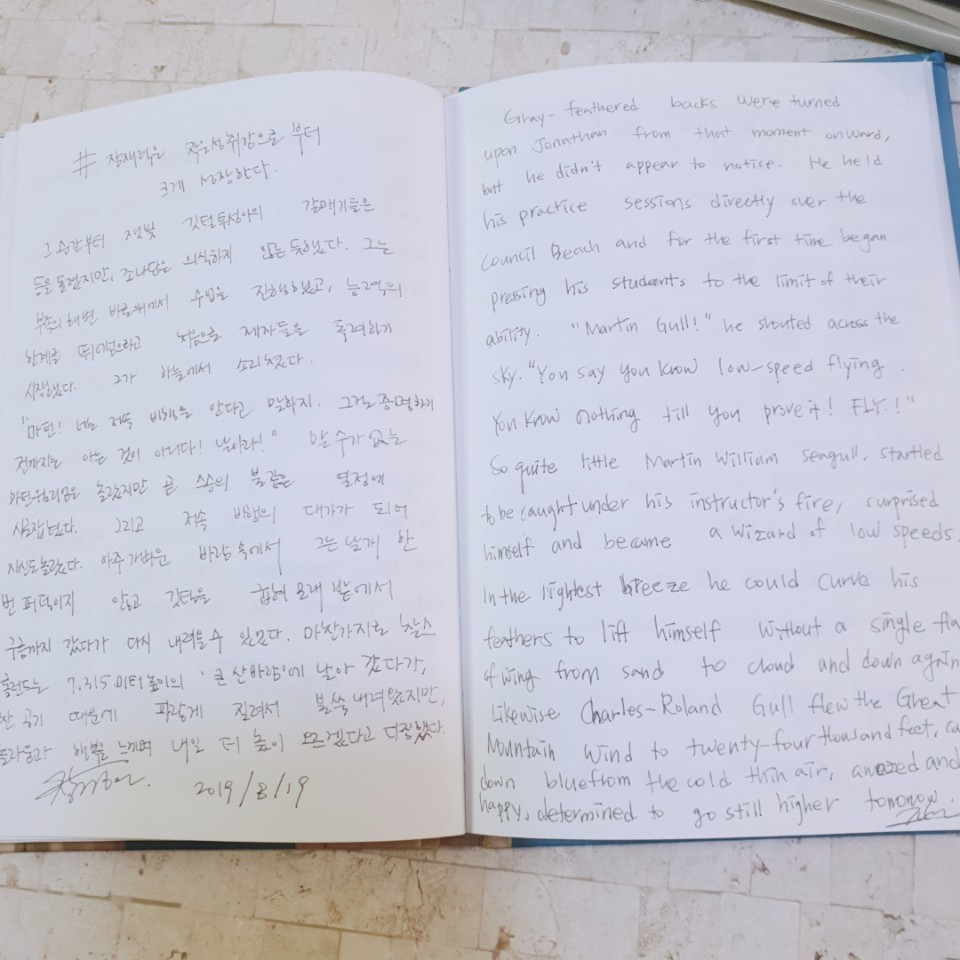 # 잠재력은 작은성취감으로 부터
크게 성장한다.
그 순간부터 잿빛 깃털투성이의 갈매기들은
등을 돌렸지만, 조나단은 의식하지 않는 듯했다. 그는
부족의 해변 바로위에서 수업을 진행하였고, 능력의
한계를 뛰어넘으라고 처음으로 제자들을 독려하기
시작했다. 그가 하늘에서 소리쳤다.
"마틴! 너는 저속 비행을 안다고 말하지. 그걸 증명하기
전까지는 아는 것이 아니다! 날아라!" 알 수가 없는
마틴윌리엄은 놀랐지만 곧 스승의 불같은 열정에
사로잡혔다. 그리고 저속 비행의 대가가 되어
자신도놀랐다. 아주 가벼운 바람 속에서 그는 날개 한
번 퍼덕이지 않고 깃털을 굽혀 모래 밭에서
구름까지 갔다가 다시 내려올 수 있었다. 마찬가지로 찰스
롤런드는 7.315미터높이의 '큰 산바람'에 날아 갔다가,
찬 공기 때문에 파랗게 질려서 불쑥 내려왔지만,
놀라움과 행복을 느끼며 내일 더 높이 오르겠다고 다짐했다.
2019/8/19
Gray-feathered backs were turned
upon Jonathan from that moment onward,
but he didn't appear to notice. He held
his practice sessions directly over the
Council Beach and for the first time began
pressing his students to the limit of their
ability. "Martin Gull!" he shouted across the
sky. "You say you know low-speed flying.
You know nothing till you prove it! FLY!"
So quite little Martin William seagull, startled
to be caught under his instructor's fire, surprised
himself and became a wizard of low speeds.
In the lightest breeze he could curve his
feathers to lift himself without a single fla
of wing from sand to cloud and down again
Likewise Charles-Roland Gull flew the Great
Mountain Wind to twenty-four thousand feet, ca
down blue from the cold thin air, amazed and
happy, determined to go still higher tomorrow.